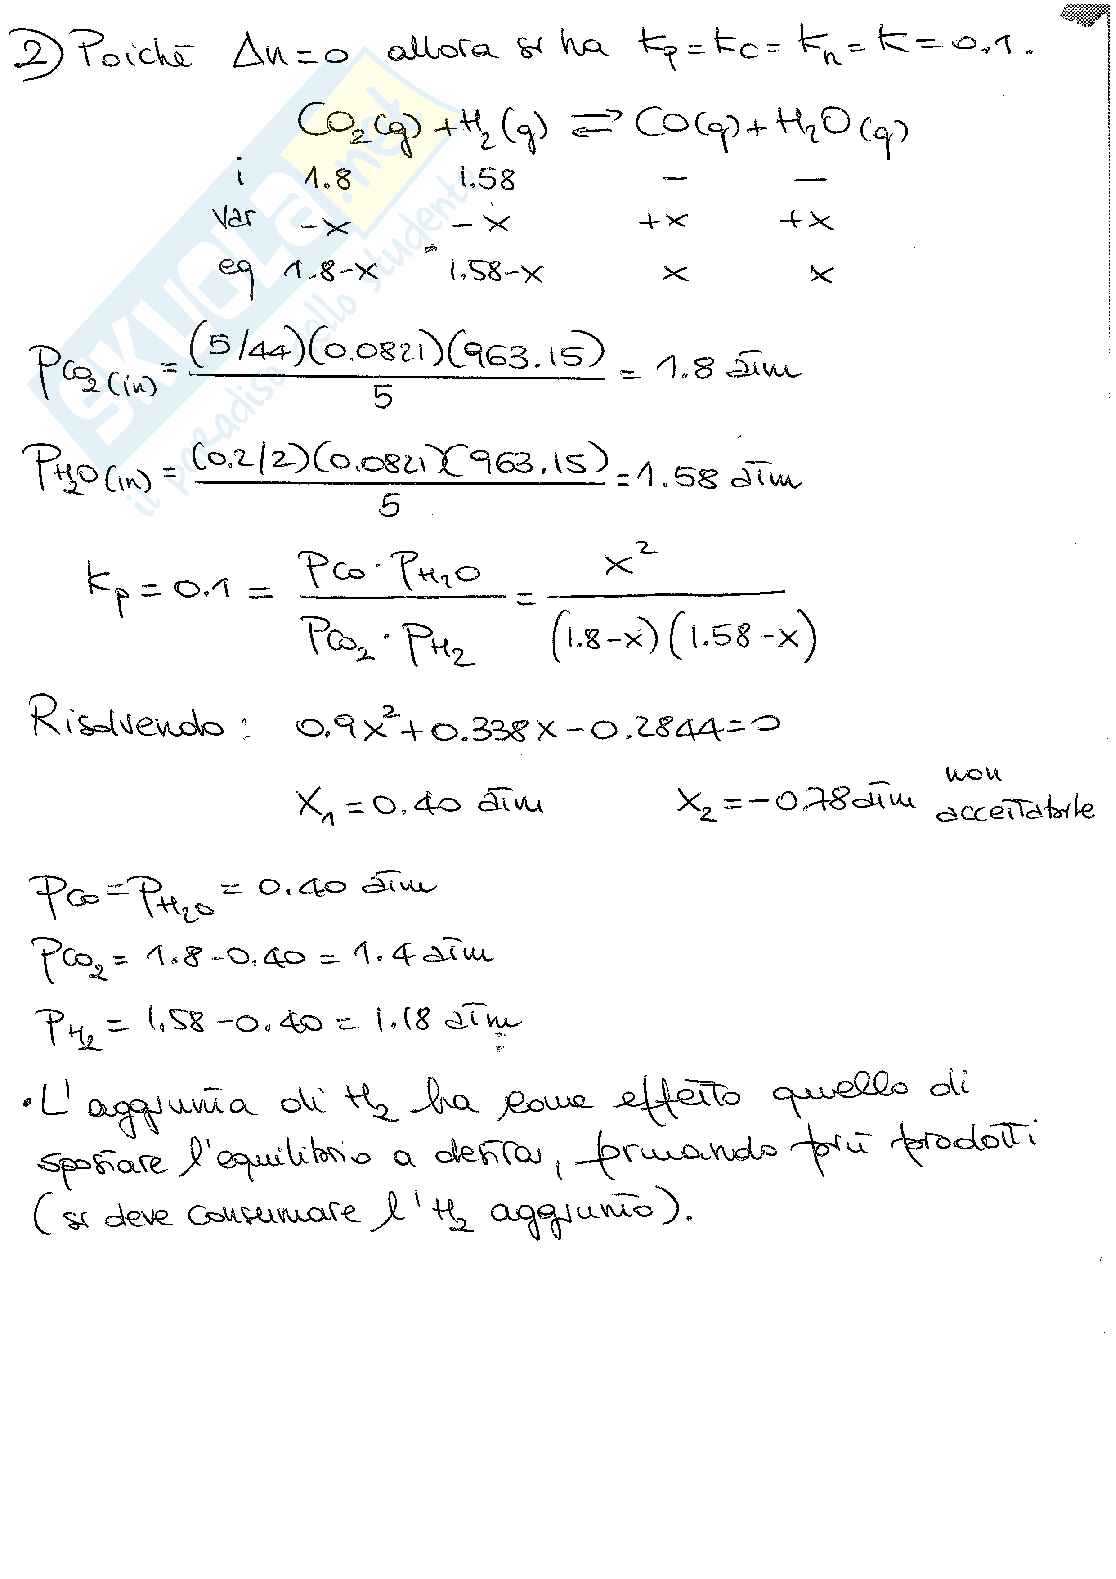 2) Poiché Δn=0 allora si ha Kp=Kc=Kn=K=0.1.
CO2(g)+H2(g) ⇄ CO(g)+H2O(g)
i 1.8 1.58 - -
var -x -x +x +x
eq 1.8-x 1.58-x x x
PCO2(in) = (5/44)(0.0821)(963.15) / 5 = 1.8 atm
PH2O(in) = (0.2/2)(0.0821)(963.15) / 5 = 1.58 atm
Kp = 0.1 = PCO · PH2O / PCO2 · PH2 = x² / (1.8-x)(1.58-x)
Risolvendo: 0.9x²+0.338x-0.2844=0
X1=0.40 atm X2=-0.78 atm non accettabile
PCO=PH2O = 0.40 atm
PCO2 = 1.8-0.40 = 1.4 atm
PH2 = 1.58-0.40 = 1.18 atm
• L'aggiunta di H2 ha come effetto quello di
spostare l'equilibrio a destra, formando più prodotti
(si deve consumare l'H2 aggiunto).
SKUOLA.net
il paradiso dello studente